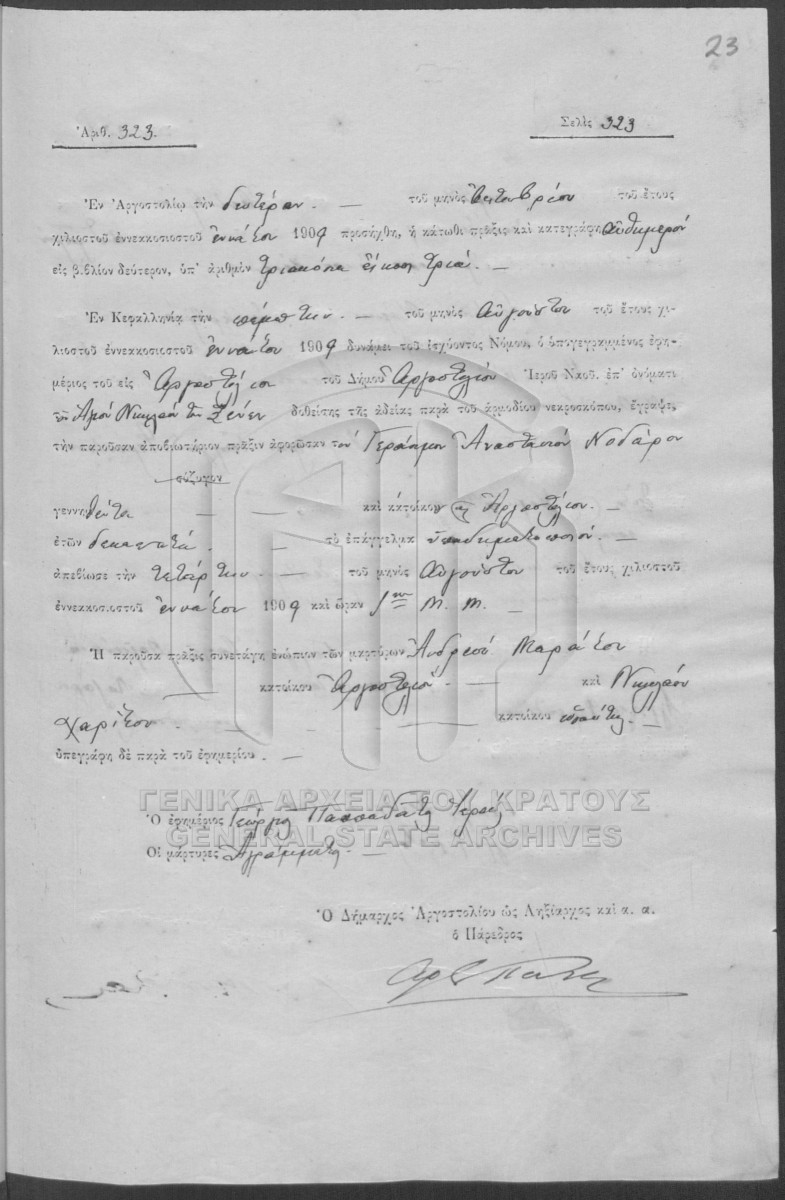 23
Ἀριθ. 323.
Σελὶς 323
Ἐν Ἀργοστολίῳ τὴν δευτέραν. — τοῦ μηνὸς Ὀκτωβρίου τοῦ ἔτους
χιλιοστοῦ ἐννεακοσιοστοῦ ἐννάτου 1909 προσήχθη, ἡ κάτωθι πρᾶξις καὶ κατεγράφη αὐθημερόν
εἰς βιβλίον δεύτερον, ὑπ᾽ ἀριθμὸν τριακόσια εἴκοσι τρία. —
Ἐν Κεφαλληνίᾳ τὴν πέμπτην. — τοῦ μηνὸς Αὐγούστου τοῦ ἔτους χι-
λιοστοῦ ἐννεακοσιοστοῦ ἐννάτου 1909 δυνάμει τοῦ ἰσχύοντος Νόμου, ὁ ὑπογεγραμμένος ἐφη-
μέριος τοῦ εἰς Ἀργοστόλιον τοῦ Δήμου Ἀργοστολίου Ἱεροῦ Ναοῦ. ἐπ᾽ ὀνόματι
Ἁγίου Νικολάου δοθείσης τῆς ἀδείας παρὰ τοῦ ἁρμοδίου νεκροσκόπου, ἔγραψε,
τὴν παροῦσαν ἀποβιωτήριον πρᾶξιν ἀφορῶσαν τὸν Γεράσιμον Ἀναστασίου Νοδάρου
σύζυγον
γεννηθέντα — — καὶ κάτοικον Ἀργοστολίου. —
ἐτῶν δεκαεπτά. — τὸ ἐπάγγελμα ὑποδηματοποιόν. —
ἀπεβίωσε τὴν τετάρτην. — τοῦ μηνὸς Αὐγούστου τοῦ ἔτους χιλιοστοῦ
ἐννεακοσιοστοῦ ἐννάτου 1909 καὶ ὥραν Μ. Μ. —
Ἡ παροῦσα πρᾶξις συνετάγη ἐνώπιον τῶν μαρτύρων Ἀνδρέου Μαράτου
— κατοίκου Ἀργοστολίου — — καὶ Νικολάου
Χαρίτου. — — — — κατοίκου —
ὑπεγράφη δὲ παρὰ τοῦ ἐφημερίου. —
ΓΕΝΙΚΑ ΑΡΧΕΙΑ ΤΟΥ ΚΡΑΤΟΥΣ
Ὁ ἐφημέριος Γεώργιος Παππαδάτος Ἱερεύς
GENERAL STATE ARCHIVES
Οἱ μάρτυρες Ἀγράμματοι. —
Ὁ Δήμαρχος Ἀργοστολίου ὡς Ληξίαρχος καὶ α. α.
ὁ Πάρεδρος